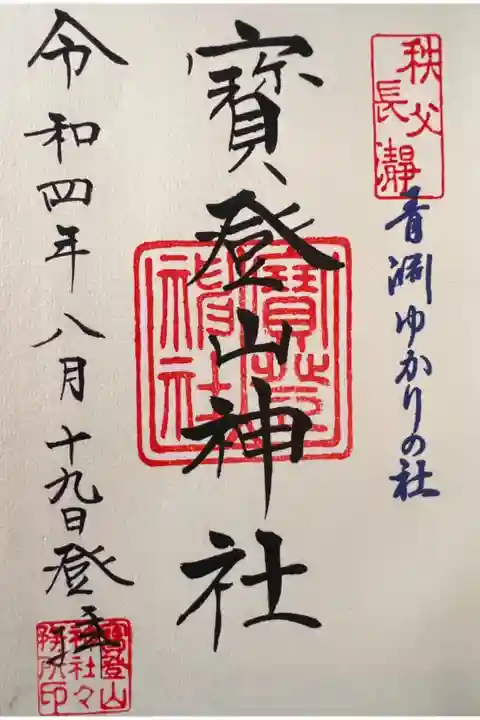 秩父
長瀞
青渕ゆかりの社
寳登山神社
令和四年八月十九日登拝
寳登山
神社々
務所印